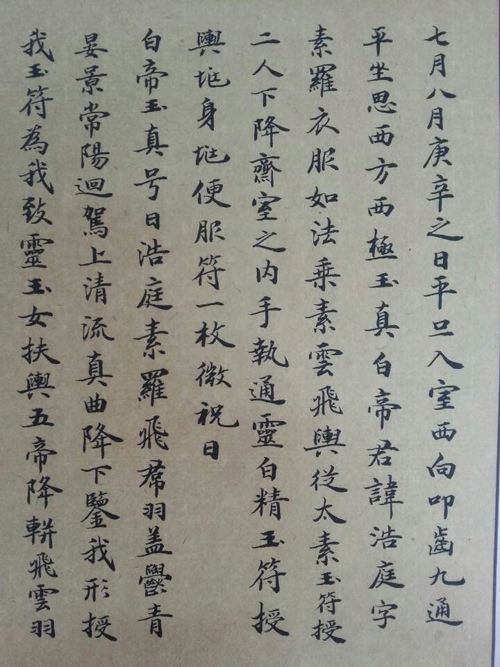 七月八月庚辛之日平旦入室西向叩齒九通
平坐思西方西極玉真白帝君諱浩庭字
素羅衣服如法乗素雲飛輿従太素玉符授
二人下降齋室之内手執通靈白精玉符授
輿𫰛身𫰛便服符一枚微祝日
白帝玉真号日浩庭素羅飛帬羽盖鬱青
晏景常陽迴駕上清流真曲降下鑒我形授
我玉符為我致靈玉女扶輿五帝降軿飛雲羽